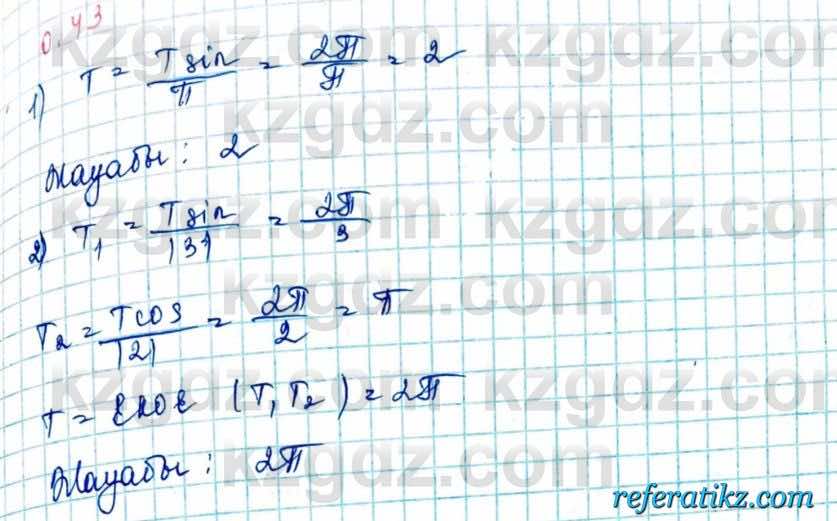 0.43
1) T = T sin / π = 2π / π = 2
Жауабы: 2
2) T₁ = T sin / |3| = 2π / 3
T₂ = T cos / |2| = 2π / 2 = π
T = ЕКОЕ (T₁ T₂) = 2π
Жауабы: 2π
kzgdz.com
referatikz.com